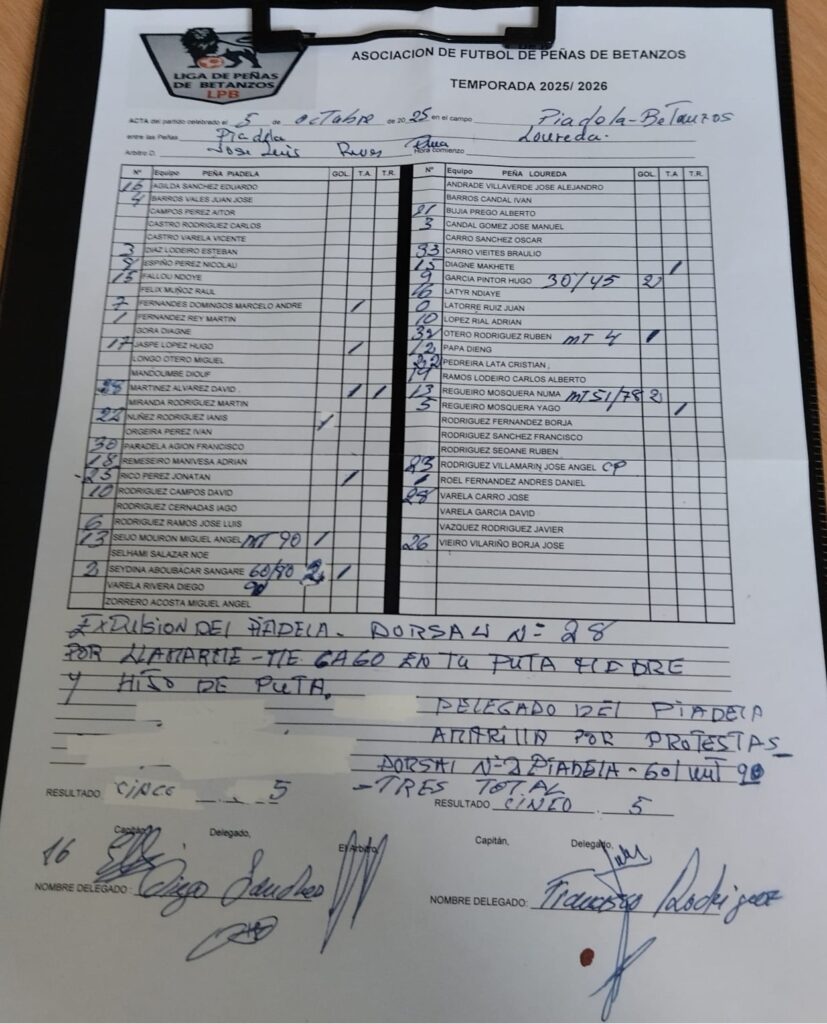 LIGA DE PEÑAS
DE BETANZOS
LPB
ASOCIACION DE FUTBOL DE PEÑAS DE BETANZOS
TEMPORADA 2025/ 2026
ACTA del partido celebrado el 5 de octubre de 2025 en el campo Piadela-Betanzos
entre las Peñas Piadela Loureda.
Arbitro D. Jose Luis Hora comienzo
Nº Equipo PEÑA PIADELA GOL. T.A. T.R.
16 AGILDA SANCHEZ EDUARDO
4 BARROS VALES JUAN JOSE
CAMPOS PEREZ AITOR
CASTRO RODRIGUEZ CARLOS
CASTRO VARELA VICENTE
3 DIAZ LODEIRO ESTEBAN
ESPIÑO PEREZ NICOLAU
15 FALLOU NDOYE
FELIX MUÑOZ RAUL
7 FERNANDES DOMINGOS MARCELO ANDRE /
1 FERNANDEZ REY MARTIN
GORA DIAGNE
17 JASPE LOPEZ HUGO /
LONGO OTERO MIGUEL
MANDOUMBE DIOUF
28 MARTINEZ ALVAREZ DAVID / /
MIRANDA RODRIGUEZ MARTIN
22 NUÑEZ RODRIGUEZ IANIS
ORGEIRA PEREZ IVAN
30 PARADELA AGION FRANCISCO
18 REMESEIRO MANIVESA ADRIAN
25 RICO PEREZ JONATAN /
10 RODRIGUEZ CAMPOS DAVID
RODRIGUEZ CERNADAS IAGO
6 RODRIGUEZ RAMOS JOSE LUIS
13 SEIJO MOURON MIGUEL ANGEL MT 90 /
SELHAMI SALAZAR NOE
2 SEYDINA ABOUBACAR SANGARE 60/80 /
VARELA RIVERA DIEGO
ZORRERO ACOSTA MIGUEL ANGEL
Nº Equipo PEÑA LOUREDA GOL T.A T.R.
ANDRADE VILLAVERDE JOSE ALEJANDRO
BARROS CANDAL IVAN
21 BUJIA PREGO ALBERTO
3 CANDAL GOMEZ JOSE MANUEL
CARRO SANCHEZ OSCAR
33 CARRO VIEITES BRAULIO
15 DIAGNE MAKHETE /
9 GARCIA PINTOR HUGO 30/45 2
LATYR NDIAYE
0 LATORRE RUIZ JUAN
10 LOPEZ RIAL ADRIAN
OTERO RODRIGUEZ RUBEN MT 4 /
12 PAPA DIENG
22 PEDREIRA LATA CRISTIAN
RAMOS LODEIRO CARLOS ALBERTO
13 REGUEIRO MOSQUERA NUMA MT 51/78 2
5 REGUEIRO MOSQUERA YAGO /
RODRIGUEZ FERNANDEZ BORJA
RODRIGUEZ SANCHEZ FRANCISCO
RODRIGUEZ SEOANE RUBEN
23 RODRIGUEZ VILLAMARIN JOSE ANGEL CP
ROEL FERNANDEZ ANDRES DANIEL
28 VARELA CARRO JOSE
VARELA GARCIA DAVID
VAZQUEZ RODRIGUEZ JAVIER
26 VIEIRO VILARIÑO BORJA JOSE
EXPULSION DEL PIADELA. DORSAL Nº 28
POR LLAMARME - ME CAGO EN TU PUTA MADRE
Y HIJO DE PUTA.
DELEGADO DEL PIADELA
AMARILLA POR PROTESTAS
DORSAL Nº 2 PIADELA - 60/ MT 90
- TRES TOTAL
RESULTADO CINCO 5
RESULTADO CINCO 5
Capitán, Delegado, El Arbitro
16
NOMBRE DELEGADO: Diego Sanchez
Capitán, Delegado,
NOMBRE DELEGADO: Francisco Rodriguez